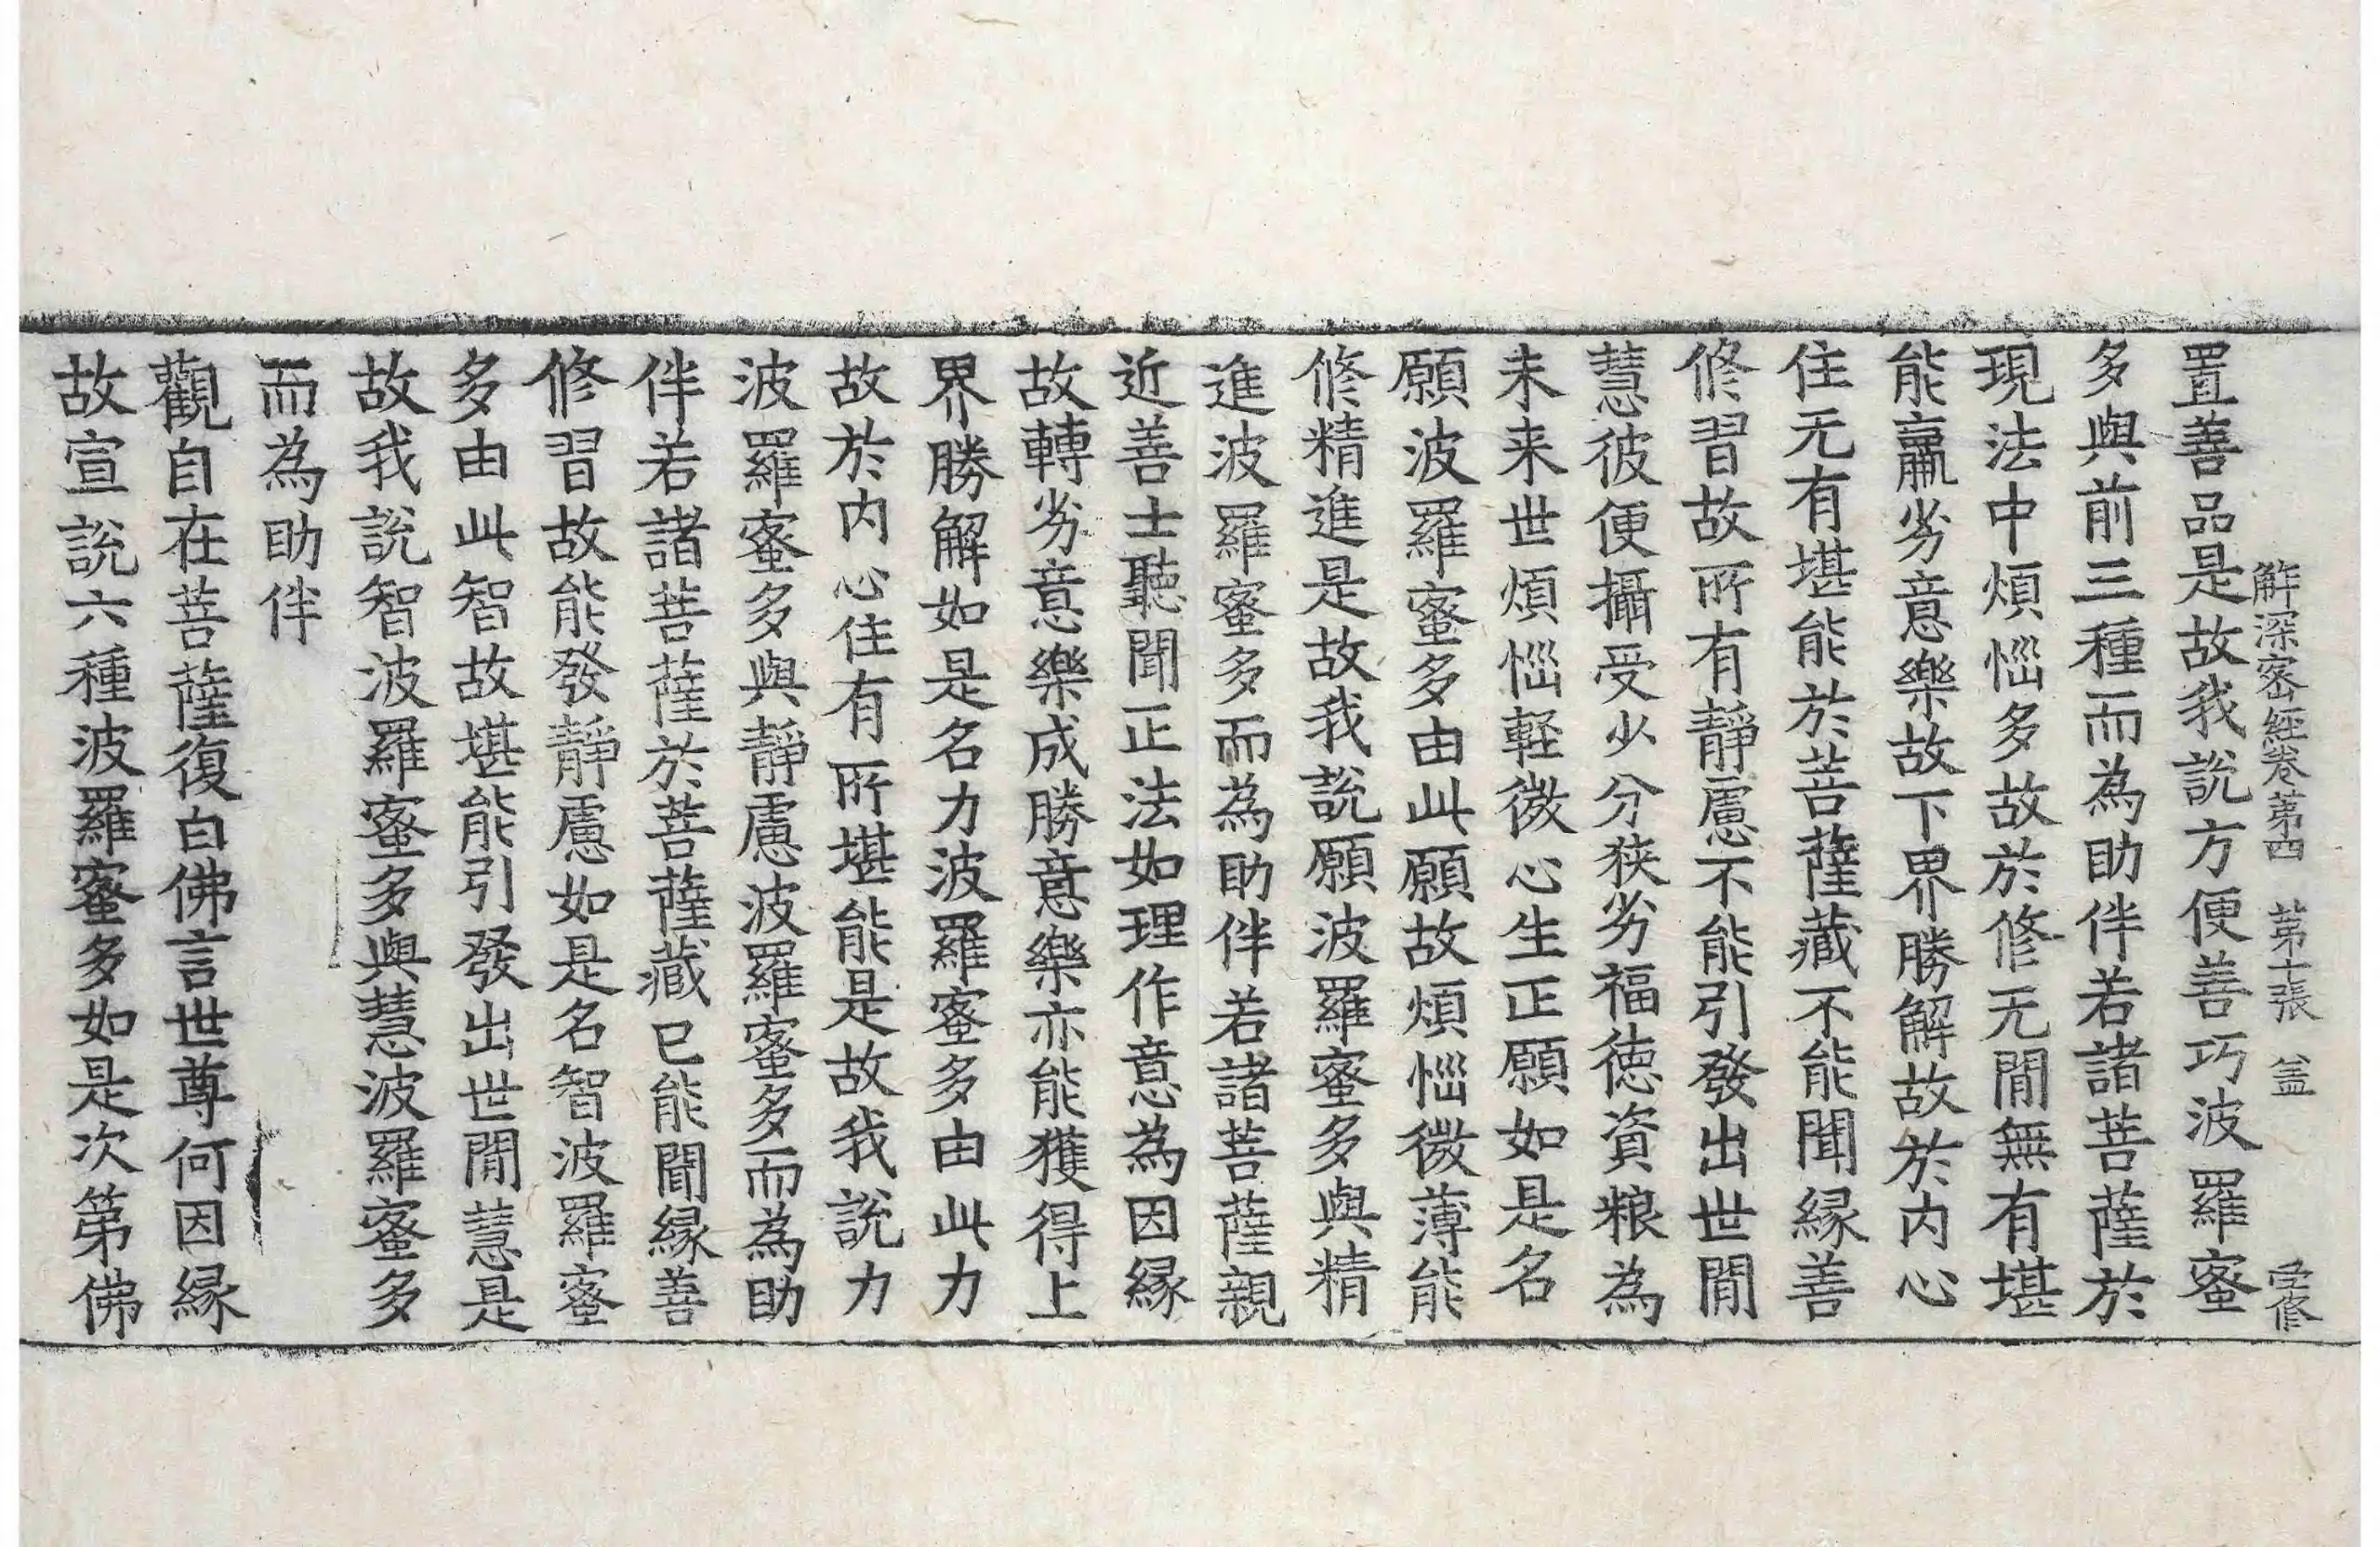 解深密經卷第四 第十張 盖 受修
置善品是故我說方便善巧波羅蜜
多與前三種而為助伴若諸菩薩於
現法中煩惱多故於修无閒無有堪
能羸劣意樂故下界勝解故於内心
住无有堪能於菩薩藏不能聞縁善
修習故所有靜慮不能引發出世閒
慧彼便攝受少分狹劣福徳資粮為
未来世煩惱軽微心生正願如是名
願波羅蜜多由此願故煩惱微薄能
修精進是故我說願波羅蜜多與精
進波羅蜜多而為助伴若諸菩薩親
近善士聽聞正法如理作意為因縁
故轉劣意樂成勝意樂亦能獲得上
界勝解如是名力波羅蜜多由此力
故於内心住有所堪能是故我說力
波羅蜜多與靜慮波羅蜜多而為助
伴若諸菩薩於菩薩藏已能聞縁善
修習故能發靜慮如是名智波羅蜜
多由此智故堪能引發出世閒慧是
故我說智波羅蜜多與慧波羅蜜多
而為助伴
觀自在菩薩復白佛言世尊何因縁
故宣說六種波羅蜜多如是次第佛